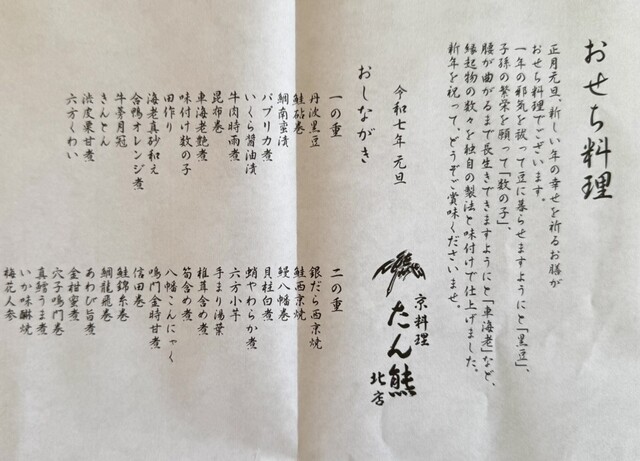 おせち料理
正月元旦、新しい年の幸せを祈るお膳が
おせち料理でございます。
一年の邪気を祓って豆に暮らせますようにと「黒豆」、
子孫の繁栄を願って「数の子」、
腰が曲がるまで長生きできますようにと「車海老」など、
縁起物の数々を独自の製法と味付けで仕上げました。
新年を祝って、どうぞご賞味くださいませ。
令和七年 元旦
京料理
たん熊
北店
おしながき
一の重
丹波黒豆
鮭砧巻
鯛南蛮漬
パプリカ煮
いくら醤油漬
牛肉時雨煮
昆布巻
車海老艶煮
味付け数の子
田作り
海老真砂和え
合鴨オレンジ煮
牛蒡月冠
きんとん
渋皮栗甘煮
六方くわい
二の重
銀だら西京焼
鮭西京焼
鰻八幡巻
貝柱白煮
蛸やわらか煮
六方小芋
手まり湯葉
椎茸含め煮
筍含め煮
八幡こんにゃく
鳴門金時甘煮
信田巻
鮭錦糸巻
鯛龍飛巻
あわび旨煮
金柑蜜煮
穴子鳴門巻
真鱈うま煮
いか味醂焼
梅花人参